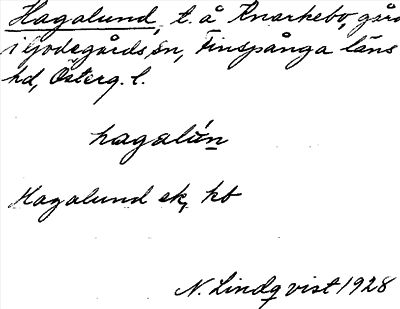 Hagalund, t. å Knarkebo, går
i Godegårds sn, Finspånga läns
hd, Österg. l.
hagalún
Hagalund ek, kb
N. Lindqvist 1928